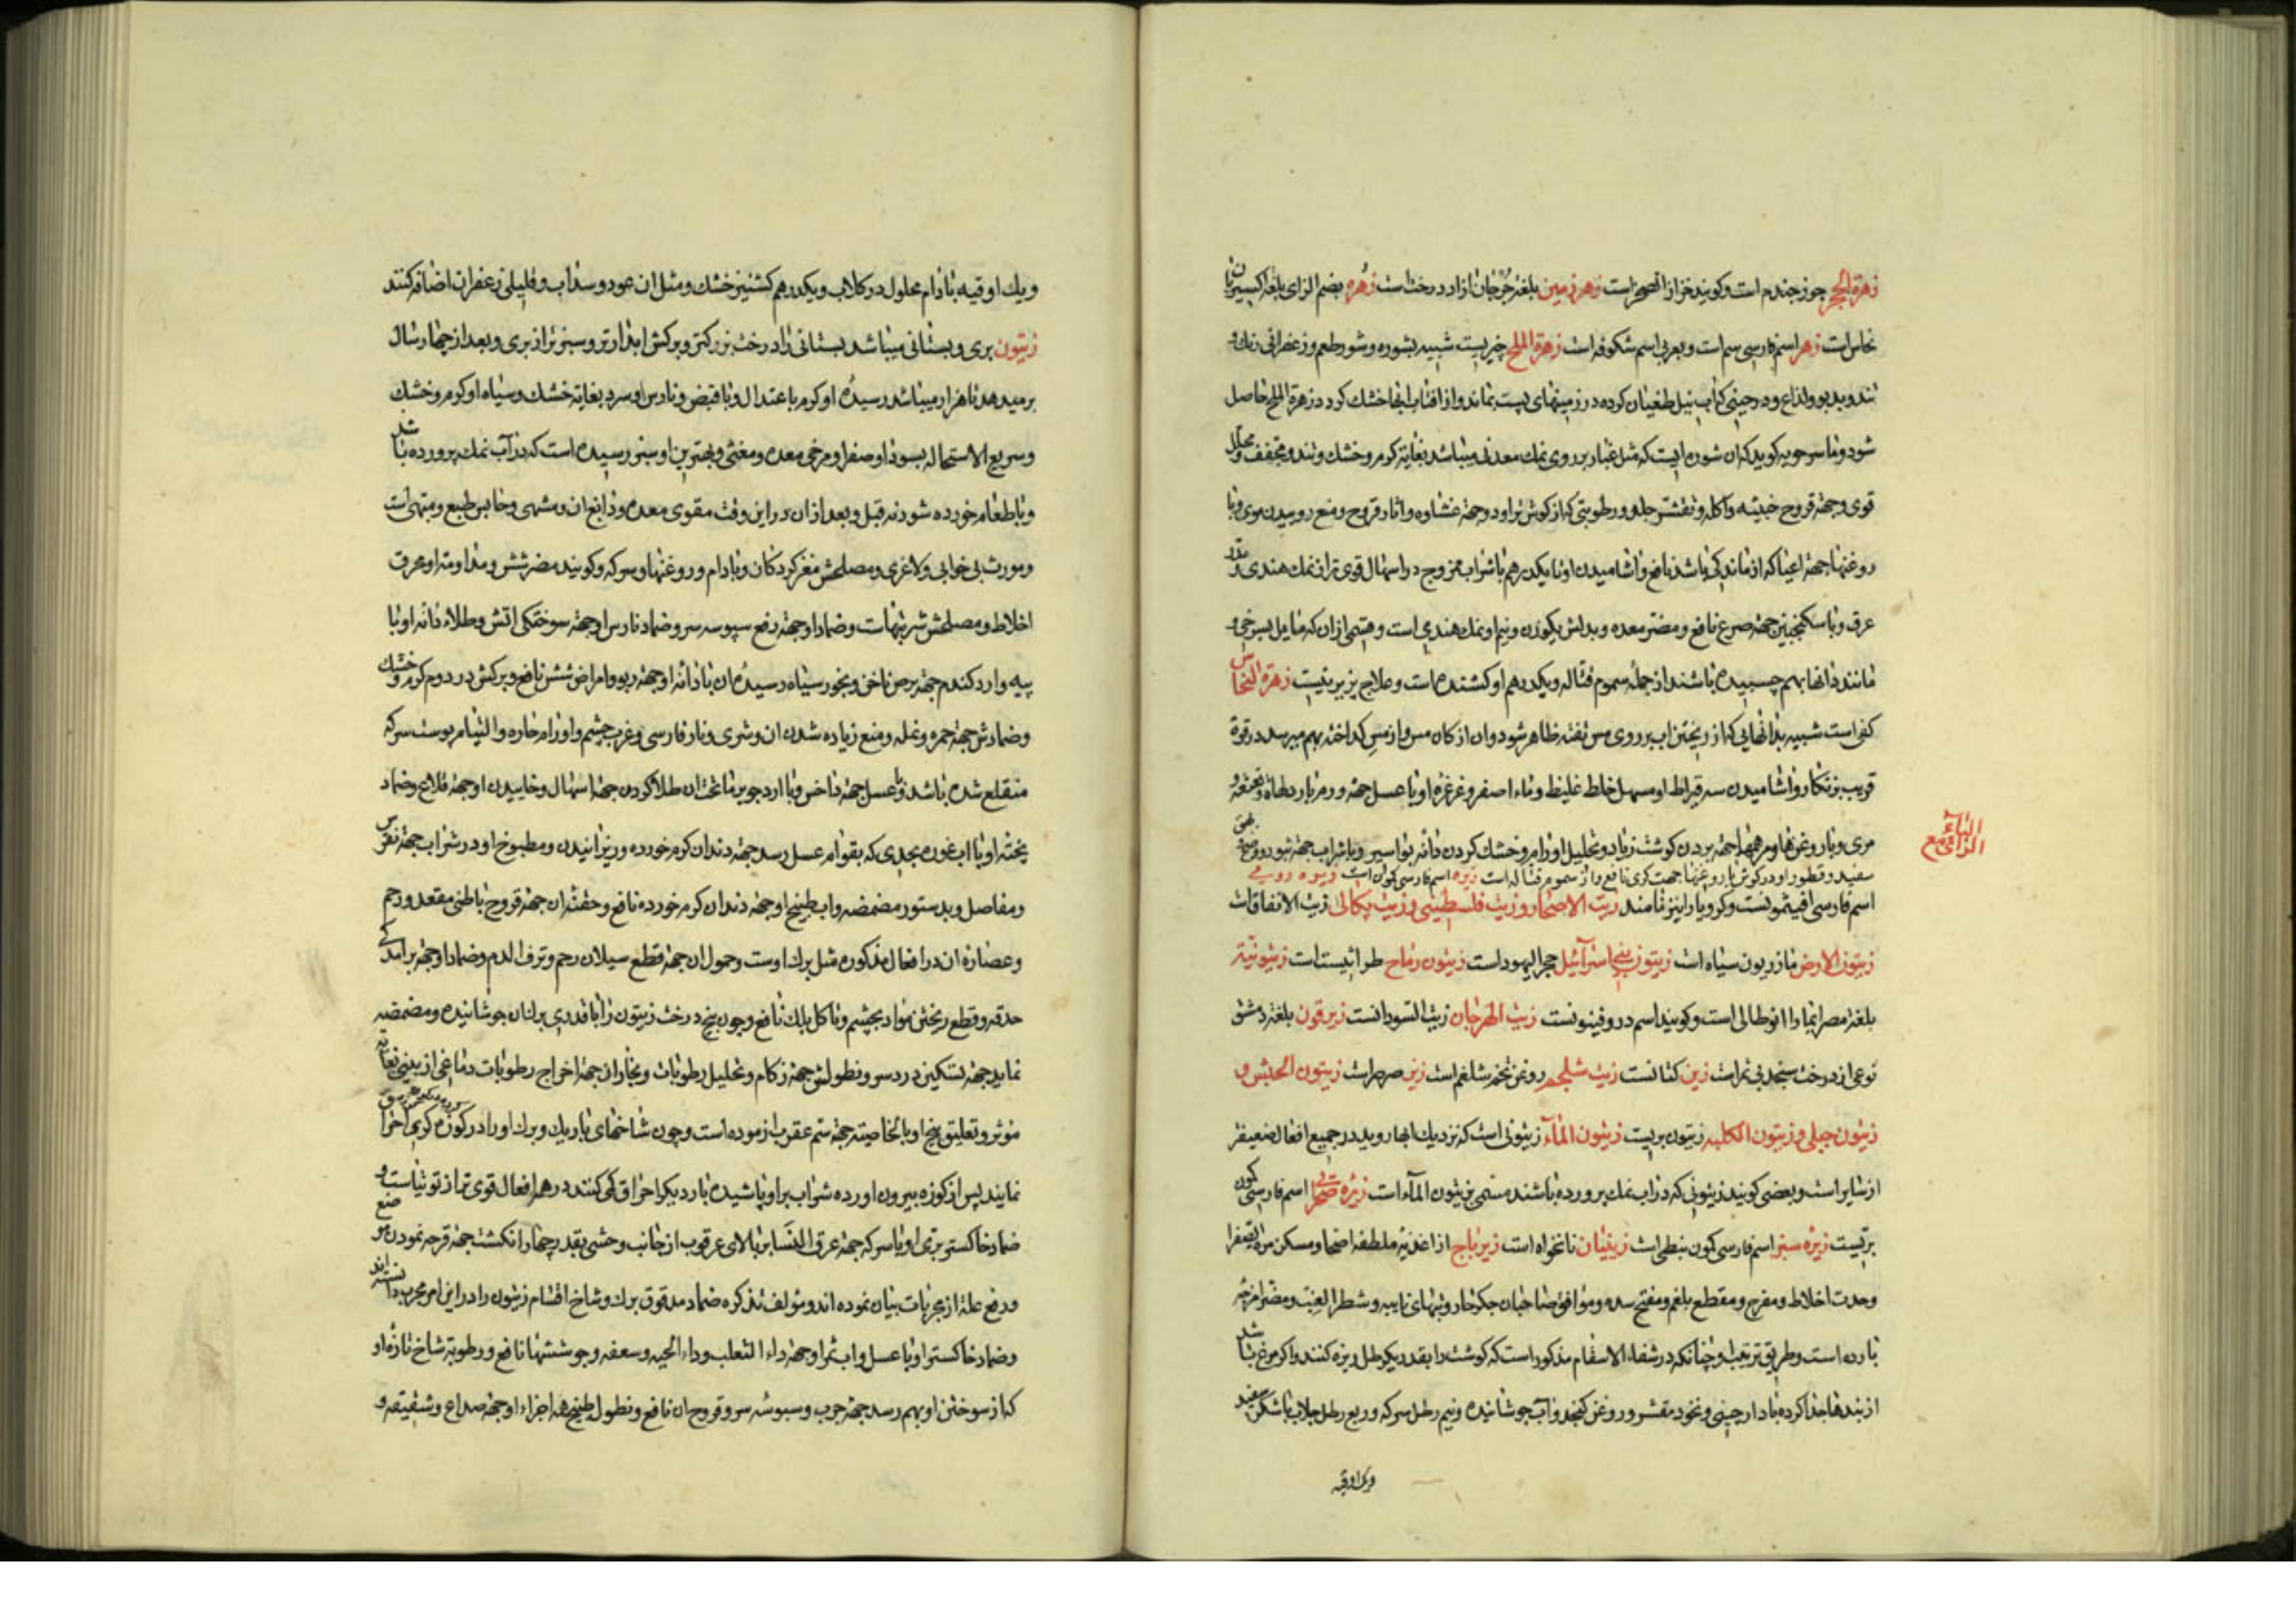 زهرة الحجر جوز جندم است و کویند حزاز الصخر است زهر زمین بلغة جرجان ازاد درخت است زهره بضم الزای بلغة اکسیریان
نحاس است زهر اسم فارسی سم است و بعربی اسم شکوفه است زهرة الملح چیزیست شبیه بشوره و شور طعم و زعفرانی رنک و
تند و بدبو و لذاع و در حینی که اب نیل طغیان کرده در زمینهای پست بماند و از افتاب انها خشک کردد زهرة الملح حاصل
شود و ماسرجویه کوید که ان شوره ایست که مثل غبار بر روی نمک معدنی میباشد بغایة کرم و خشک و تند و مجفف و محلل
قوی و جهة قروح خبیثه و اکله و تقشر جلد و رطوبتی که از کوش تراود و جهة غشاوه و اثار قروح و منع روییدن موی و با
روغنها جهة اعیا که از ماندکی باشد نافع و اشامیدن او تا یکدرهم با شراب ممزوج در اسهال قوی تر از نمک هندی و مدر
عرق و با سکنجبین جهة صرع نافع و مضر معده و بدلش یکوزن و نیم او نمک هندی است و قسمی ازان که مایل بسرخی و
مانند دانها بهم چسبیده باشند از جمله سموم قتاله و یکدرهم او کشنده است و علاج پزیر نیست زهرة النحاس
کفی است شبیه بدانهایی که از ریختن اب بر روی مس تفته ظاهر شود و ان از کان مس و از مس کداخته بهم میرسد در قوة
قریب بزنکار و اشامیدن سه قیراط او مسهل خلط غلیظ و ماء اصفر و غرغره او با عسل جهة ورم بارد لهاة و
مری و با روغنها و مرهمها جهة بردن کوشت زیاد و تحلیل اورام و خشک کردن دانه بواسیر و با شراب جهة
سفید و قطور او در کوش با روغنها جهت کری نافع و از سموم قتاله است زیره اسم فارسی کمون است زیره رومی
الزای مع الیاء
اسم فارسی افیثمونست و کرویا را نیز نامند زیت الاضحار و زیت فلسطینی و زیت رکابی زیت الانفاقات
زیتون الارض مازریون سیاه است زیتون بنی اسرائیل حجر الیهود است زیتون رماح طراثیست است زیتونیة
بلغة مصر انما داانوطالی است و کویند اسم دروفینونست زیت الهرجان زیت السودانست زیرقون بلغة دمشق
نوعی از درخت سنجد بی ثمر است زین کتانست زیت شلجم روغن تخم شلغم است زیز صرصر است زیتون الحبش و
زیتون جبلی و زیتون الکلبه زیتون بریست زیتون الماء زیتونی است که نزدیک ابها روید در جمیع افعال ضعیفتر
از سایر است و بعضی کویند زیتونی که در اب نمک پرورده باشند مسمی بزیتون الماء است زیره صحرایی اسم فارسی کمون
بریست زیره سبز اسم فارسی کمون نبطی است زینیان نانخواه است زیرباج از اغذیه ملطفه اصحا و مسکن مرة الصفرا
و حدت اخلاط و مفرح و مقطع بلغم و مفتح سده و موافق صاحبان جکر حار و تبهای نایبه و شطر الغب و مضر امزجه
بارده است و طریق ترتیب او چنانکه در شفاء الاسقام مذکور است که کوشت را بقدر یکرطل ریزه کنند و اکر مرغ باشد
از بندها جدا کرده با دارچینی و نخود مقشر و روغن کنجد و اب جوشانیده و نیم رطل سرکه و ربع رطل جلاب یا شکر سفید
و یک اوقیه
و یک اوقیه بادام محلول در کلاب و یکدرهم کشنیز خشک و مثل ان عود و سداب و قلیلی زعفران اضافه کنند
زیتون بری و بستانی میباشد بستانی را درخت بزرکتر و برکش ابدارتر و سبزتر از بری و بعد از چهار سال
بر میدهد تا هزار میباشد رسیده او کرم باعتدال و با قبض و نارس او سرد بغایة خشک و سیاه او کرم و خشک
و سریع الاستحاله بسودا و صفرا و مرخی معده و مغثی و بهترین او سبز رسیده است که در آب نمک پرورده باشد
و با طعام خورده شود نه قبل و بعد ازان در این وقت مقوی معده و دابغ ان و مشهی و حابس طبع و مبهی است
و مورث بی خوابی و لاغری و مصلحش مغز کردکان و بادام و روغنها و سرکه و کویند مضر شش و مداومة او محرق
اخلاط و مصلحش شربتهاست و ضماد او جهة رفع سبوسه سر و ضماد نارس او جهة سوختکی اتش و طلاء دانه او با
پیه و ارد کندم جهة برص ناخن و بخور سیاه رسیده ان با دانه او جهة ربو و امراض شش نافع و برکش در دوم کرم و خشک
و ضمادش جهة حمره و نمله و منع زیاده شدن ان و شری و نار فارسی و غرب چشم و اورام حاره و التیام پوست سر که
منقلع شده باشد و با عسل جهة داخس و با ارد جو بر ما تحت ان طلا کردن جهة اسهال و خاییدن او جهة قلاع و ضماد
پخته او با اب غوره بحدی که بقوام عسل رسد جهة دندان کرم خورده و ریزانیدن و مطبوخ او در شراب جهة نقرس
و مفاصل و بدستور مضمضه و اب طبیخ او جهة دندان کرم خورده نافع و حقنه ان جهة قروح باطنی مقعد و رحم
و عصاره ان در افعال مذکوره مثل برک اوست و حمول ان جهة قطع سیلان رحم و نزف الدم و ضماد او جهة برامدکی
حدقه و قطع ریختن مواد بچشم و تاکل پلک نافع و چون بیخ درخت زیتون را با قدری برک ان جوشانیده و مضمضه
نماید جهة تسکین درد سر و نطولش جهة زکام و تحلیل رطوبات و بخار ان جهة اخراج رطوبات دماغی از بینی بغایة
مؤثر و تعلیق بیخ او بالخاصیته جهة سم عقرب ازموده است و چون شاخهای باریک و برک او را در کوزه کرده احراق
نمایند پس از کوزه بیرون اورده شراب بر او پاشیده بار دیکر احراق کنند در همه افعال قوی تر از توتیاست و
ضماد خاکستر بری او با سرکه جهة عرق النسا بر بالای عرقوب از جانب وحشی بقدر چهار انکشت جهة قرحه نمودن موضع
و دفع علة از مجربات بیان نموده اند و مؤلف تذکره ضماد مدقوق برک و شاخ اقسام زیتون را در این امر مجرب دانسته اند
و ضماد خاکستر او با عسل و اب ثمر او جهة داء الثعلب و داء الحیه و سعفه و جوششها نافع و رطوبة شاخ تازه او
که از سوختن او بهم رسد جهة جرب و سبوسه سر و قروح ان نافع و نطول طبیخ همه اجزاء او جهة صداع و شقیقه و